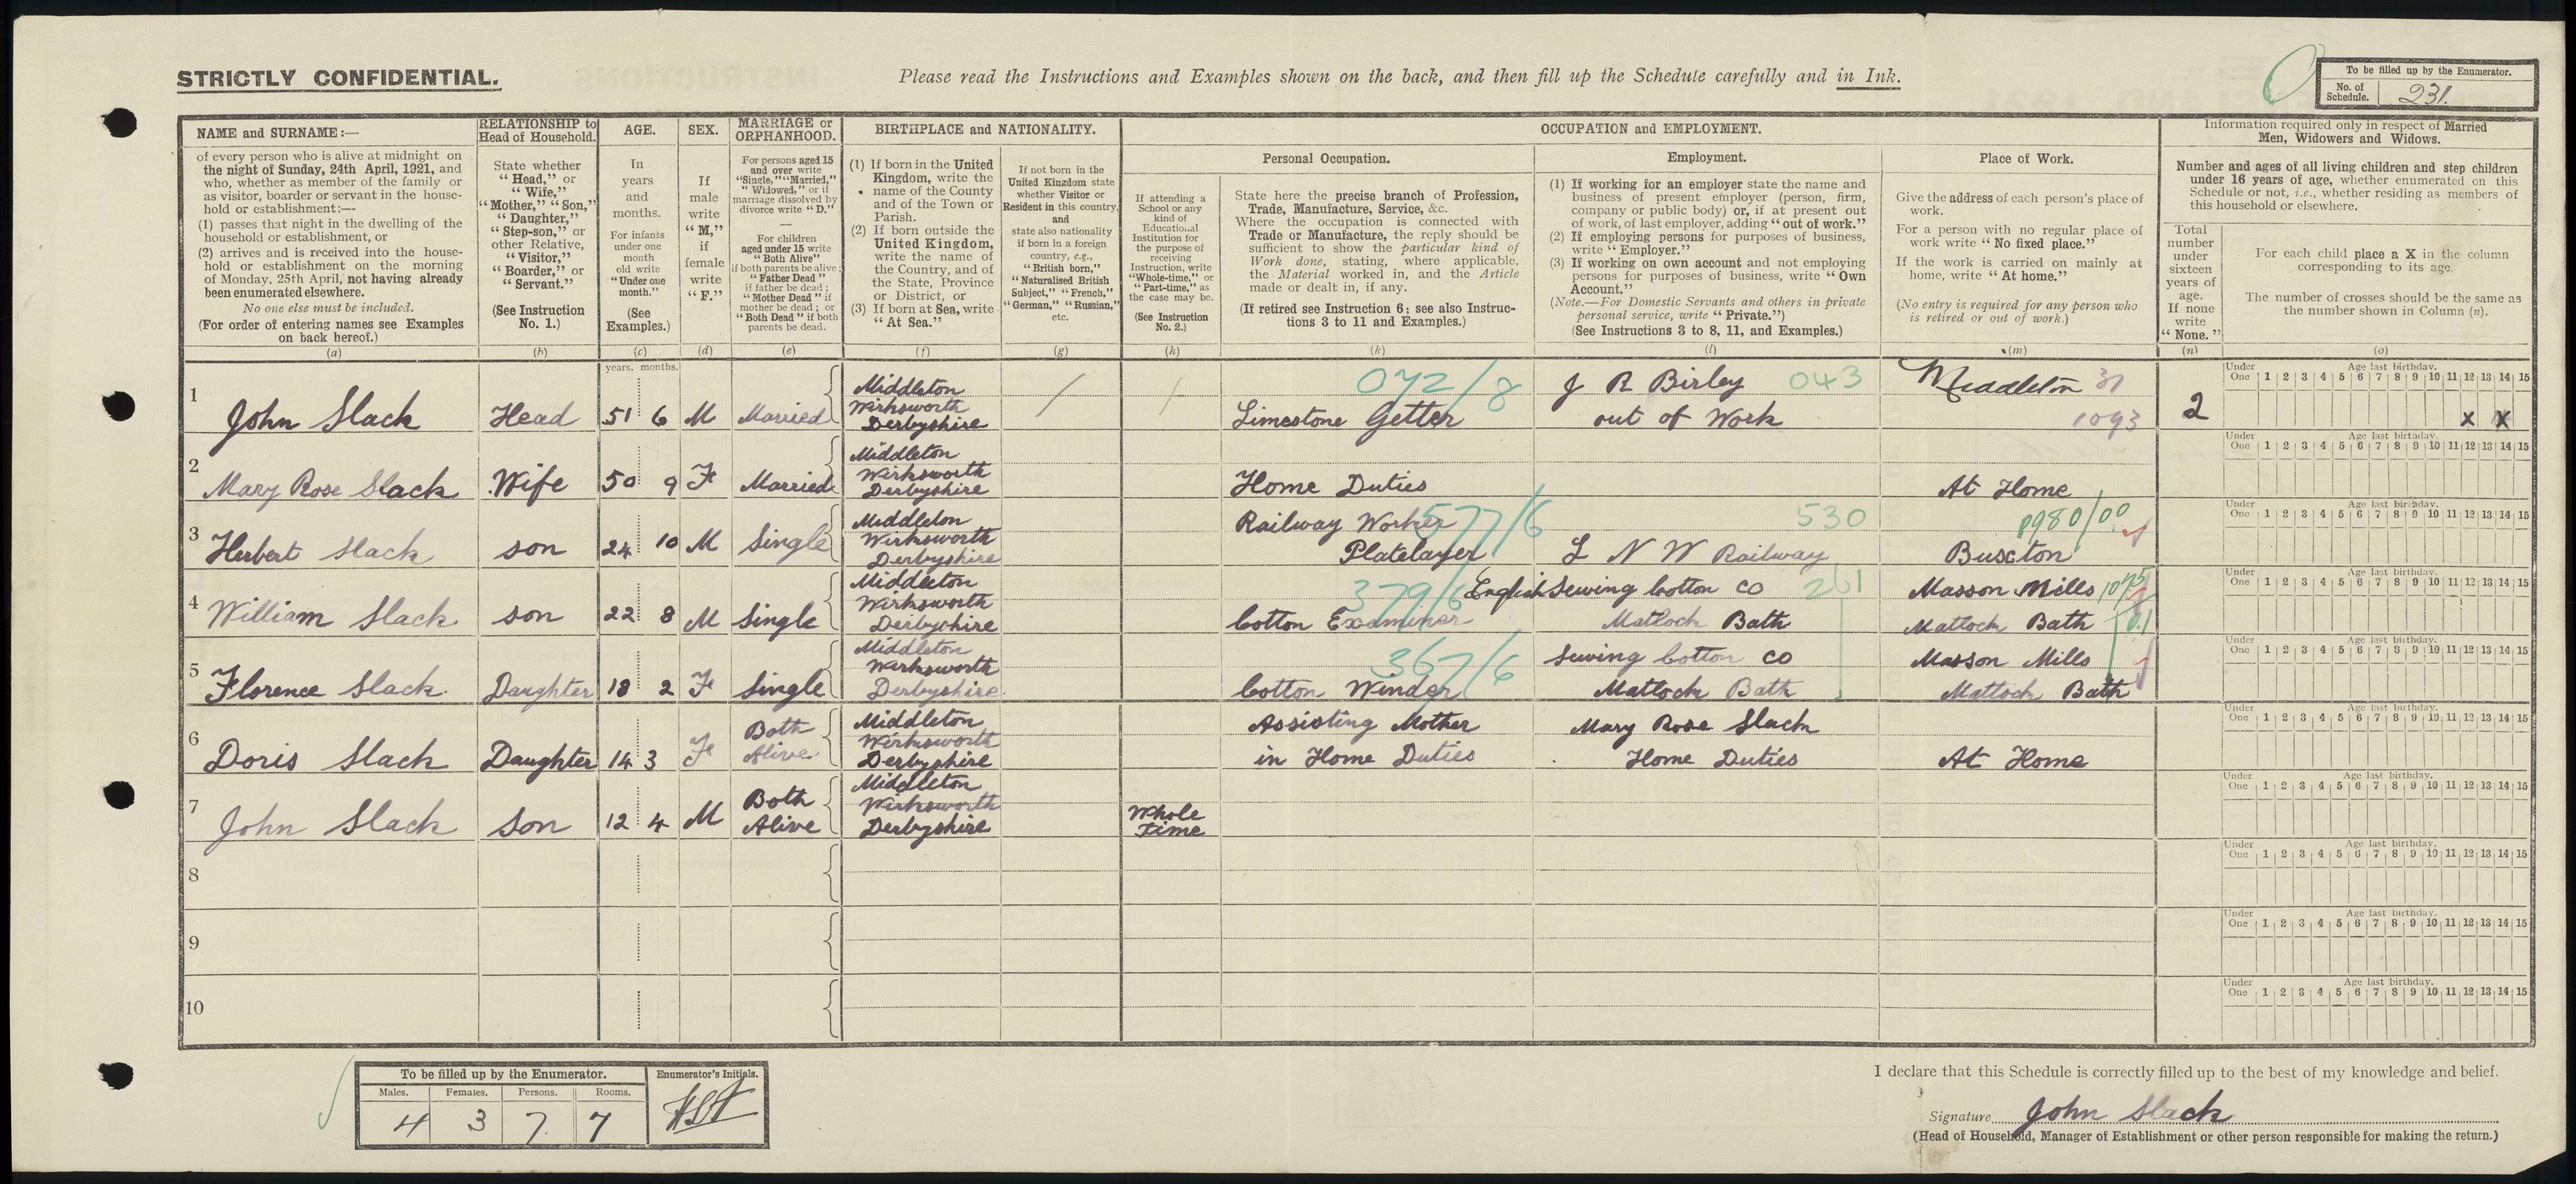 STRICTLY CONFIDENTIAL.
Please read the Instructions and Examples shown on the back, and then fill up the Schedule carefully and in Ink.
To be filled up by the Enumerator.
No. of Schedule. 231.
NAME and SURNAME:—
of every person who is alive at midnight on
the night of Sunday, 24th April, 1921, and
who, whether as member of the family or
as visitor, boarder or servant in the house-
hold or establishment:—
(1) passes that night in the dwelling of the
household or establishment, or
(2) arrives and is received into the house-
hold or establishment on the morning
of Monday, 25th April, not having already
been enumerated elsewhere.
No one else must be included.
(For order of entering names see Examples
on back hereof.)
(a)
RELATIONSHIP to
Head of Household.
State whether
"Head," or
"Wife,"
"Mother," "Son,"
"Daughter,"
"Step-son," or
other Relative,
"Visitor,"
"Boarder," or
"Servant."
(See Instruction
No. 1.)
(b)
AGE.
In
years
and
months.
For infants
under one
month
old write
"Under one
month."
(See
Examples.)
(c)
SEX.
If
male
write
"M,"
if
female
write
"F."
(d)
MARRIAGE or
ORPHANHOOD.
For persons aged 15
and over write
"Single," "Married,"
"Widowed," or if
marriage dissolved by
divorce write "D."
—
For children
aged under 15 write
"Both Alive"
if both parents be alive;
"Father Dead"
if father be dead;
"Mother Dead" if
mother be dead; or
"Both Dead" if both
parents be dead.
(e)
BIRTHPLACE and NATIONALITY.
(1) If born in the United
Kingdom, write the
name of the County
and of the Town or
Parish.
(2) If born outside the
United Kingdom,
write the name of
the Country, and of
the State, Province
or District, or
(3) If born at Sea, write
"At Sea."
(f)
If not born in the
United Kingdom state
whether Visitor or
Resident in this country,
and
state also nationality
if born in a foreign
country, e.g.,
"British born,"
"Naturalised British
Subject," "French,"
"German," "Russian,"
etc.
(g)
OCCUPATION and EMPLOYMENT.
If attending a
School or any
kind of
Educational
Institution for
the purpose of
receiving
Instruction, write
"Whole-time," or
"Part-time," as
the case may be.
(See Instruction
No. 2.)
(h)
Personal Occupation.
State here the precise branch of Profession,
Trade, Manufacture, Service, &c.
Where the occupation is connected with
Trade or Manufacture, the reply should be
sufficient to show the particular kind of
Work done, stating, where applicable,
the Material worked in, and the Article
made or dealt in, if any.
(If retired see Instruction 6; see also Instruc-
tions 3 to 11 and Examples.)
(k)
Employment.
(1) If working for an employer state the name and
business of present employer (person, firm,
company or public body) or, if at present out
of work, of last employer, adding "out of work."
(2) If employing persons for purposes of business,
write "Employer."
(3) If working on own account and not employing
persons for purposes of business, write "Own
Account."
(Note.—For Domestic Servants and others in private
personal service, write "Private.")
(See Instructions 3 to 8, 11, and Examples.)
(l)
Place of Work.
Give the address of each person's place of
work.
For a person with no regular place of
work write "No fixed place."
If the work is carried on mainly at
home, write "At home."
(No entry is required for any person who
is retired or out of work.)
(m)
Information required only in respect of Married
Men, Widowers and Widows.
Number and ages of all living children and step children
under 16 years of age, whether enumerated on this
Schedule or not, i.e., whether residing as members of
this household or elsewhere.
Total
number
under
sixteen
years of
age.
If none
write
"None."
(n)
For each child place a X in the column
corresponding to its age.
The number of crosses should be the same as
the number shown in Column (n).
(o)
years. months.
1 John Slack Head 51 6 M Married Middleton Wirksworth Derbyshire / / 072/8 Limestone Getter J R Birley 043 out of Work Middleton 31 1093 2
Under One 1 2 3 4 5 6 7 8 9 10 11 12 13 14 15 Age last birthday.
x x
2 Mary Rose Slack Wife 50 9 F Married Middleton Wirksworth Derbyshire Home Duties At Home
Under One 1 2 3 4 5 6 7 8 9 10 11 12 13 14 15 Age last birthday.
3 Herbert Slack son 24 10 M Single Middleton Wirksworth Derbyshire Railway Worker Platelayer 577/6 530 L N W Railway Buxton p980/00
Under One 1 2 3 4 5 6 7 8 9 10 11 12 13 14 15 Age last birthday.
4 William Slack son 22 8 M Single Middleton Wirksworth Derbyshire 379/6 Cotton Examiner English Sewing Cotton Co 261 Matlock Bath Masson Mills Matlock Bath
Under One 1 2 3 4 5 6 7 8 9 10 11 12 13 14 15 Age last birthday.
5 Florence Slack Daughter 18 2 F Single Middleton Wirksworth Derbyshire 367/6 Cotton Winder Sewing Cotton Co Matlock Bath Masson Mills Matlock Bath
Under One 1 2 3 4 5 6 7 8 9 10 11 12 13 14 15 Age last birthday.
6 Doris Slack Daughter 14 3 F Both Alive Middleton Wirksworth Derbyshire Assisting Mother in Home Duties Mary Rose Slack Home Duties At Home
Under One 1 2 3 4 5 6 7 8 9 10 11 12 13 14 15 Age last birthday.
7 John Slack son 12 4 M Both Alive Middleton Wirksworth Derbyshire Whole time
Under One 1 2 3 4 5 6 7 8 9 10 11 12 13 14 15 Age last birthday.
8
Under One 1 2 3 4 5 6 7 8 9 10 11 12 13 14 15 Age last birthday.
9
Under One 1 2 3 4 5 6 7 8 9 10 11 12 13 14 15 Age last birthday.
10
Under One 1 2 3 4 5 6 7 8 9 10 11 12 13 14 15 Age last birthday.
To be filled up by the Enumerator.
Males. Females. Persons. Rooms.
4 3 7. 7
Enumerator's Initials.
I declare that this Schedule is correctly filled up to the best of my knowledge and belief.
Signature John Slack
(Head of Household, Manager of Establishment or other person responsible for making the return.)